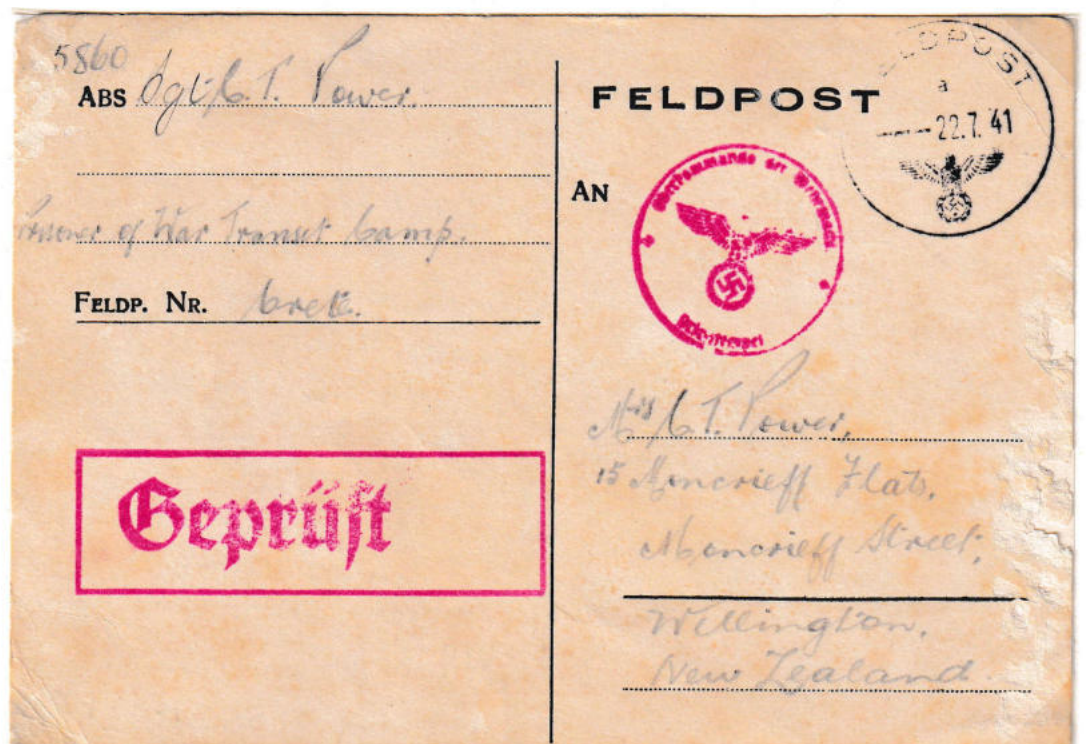 5860
ABS Sgt C. T. Power.
Prisoner of War Transit Camp.
FELDP. NR. Crete.
Geprüft
FELDPOST
FELDPOST
a
22.7. 41
AN
Oberkommando der Wehrmacht
Briefstempel
Mrs C. T. Power,
15 Moncrieff Flats,
Moncrieff Street,
Wellington,
New Zealand